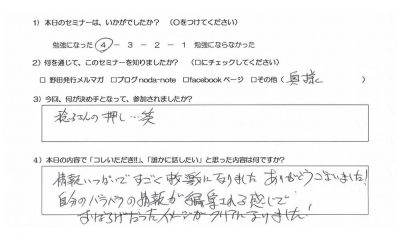 1) 本日のセミナーは、いかがでしたか？ （○をつけてください）
勉強になった ④ － 3 － 2 － 1 勉強にならなかった
2) 何を通じて、このセミナーを知りましたか？ （□にチェックしてください）
□ 野田発行メルマガ □ブログnoda-note □facebookページ □その他（ 奥様 ）
3) 今回、何が決め手となって、参加されましたか？
さんの押し…笑
4) 本日の内容で「コレいただき!!」、「誰かに話したい」と思った内容は何ですか？
情報いっぱいですごく勉強になりました ありがとうございました！
自分のバラバラの情報が編集される感じで
すばらしげだったイメージがクリアになりました！